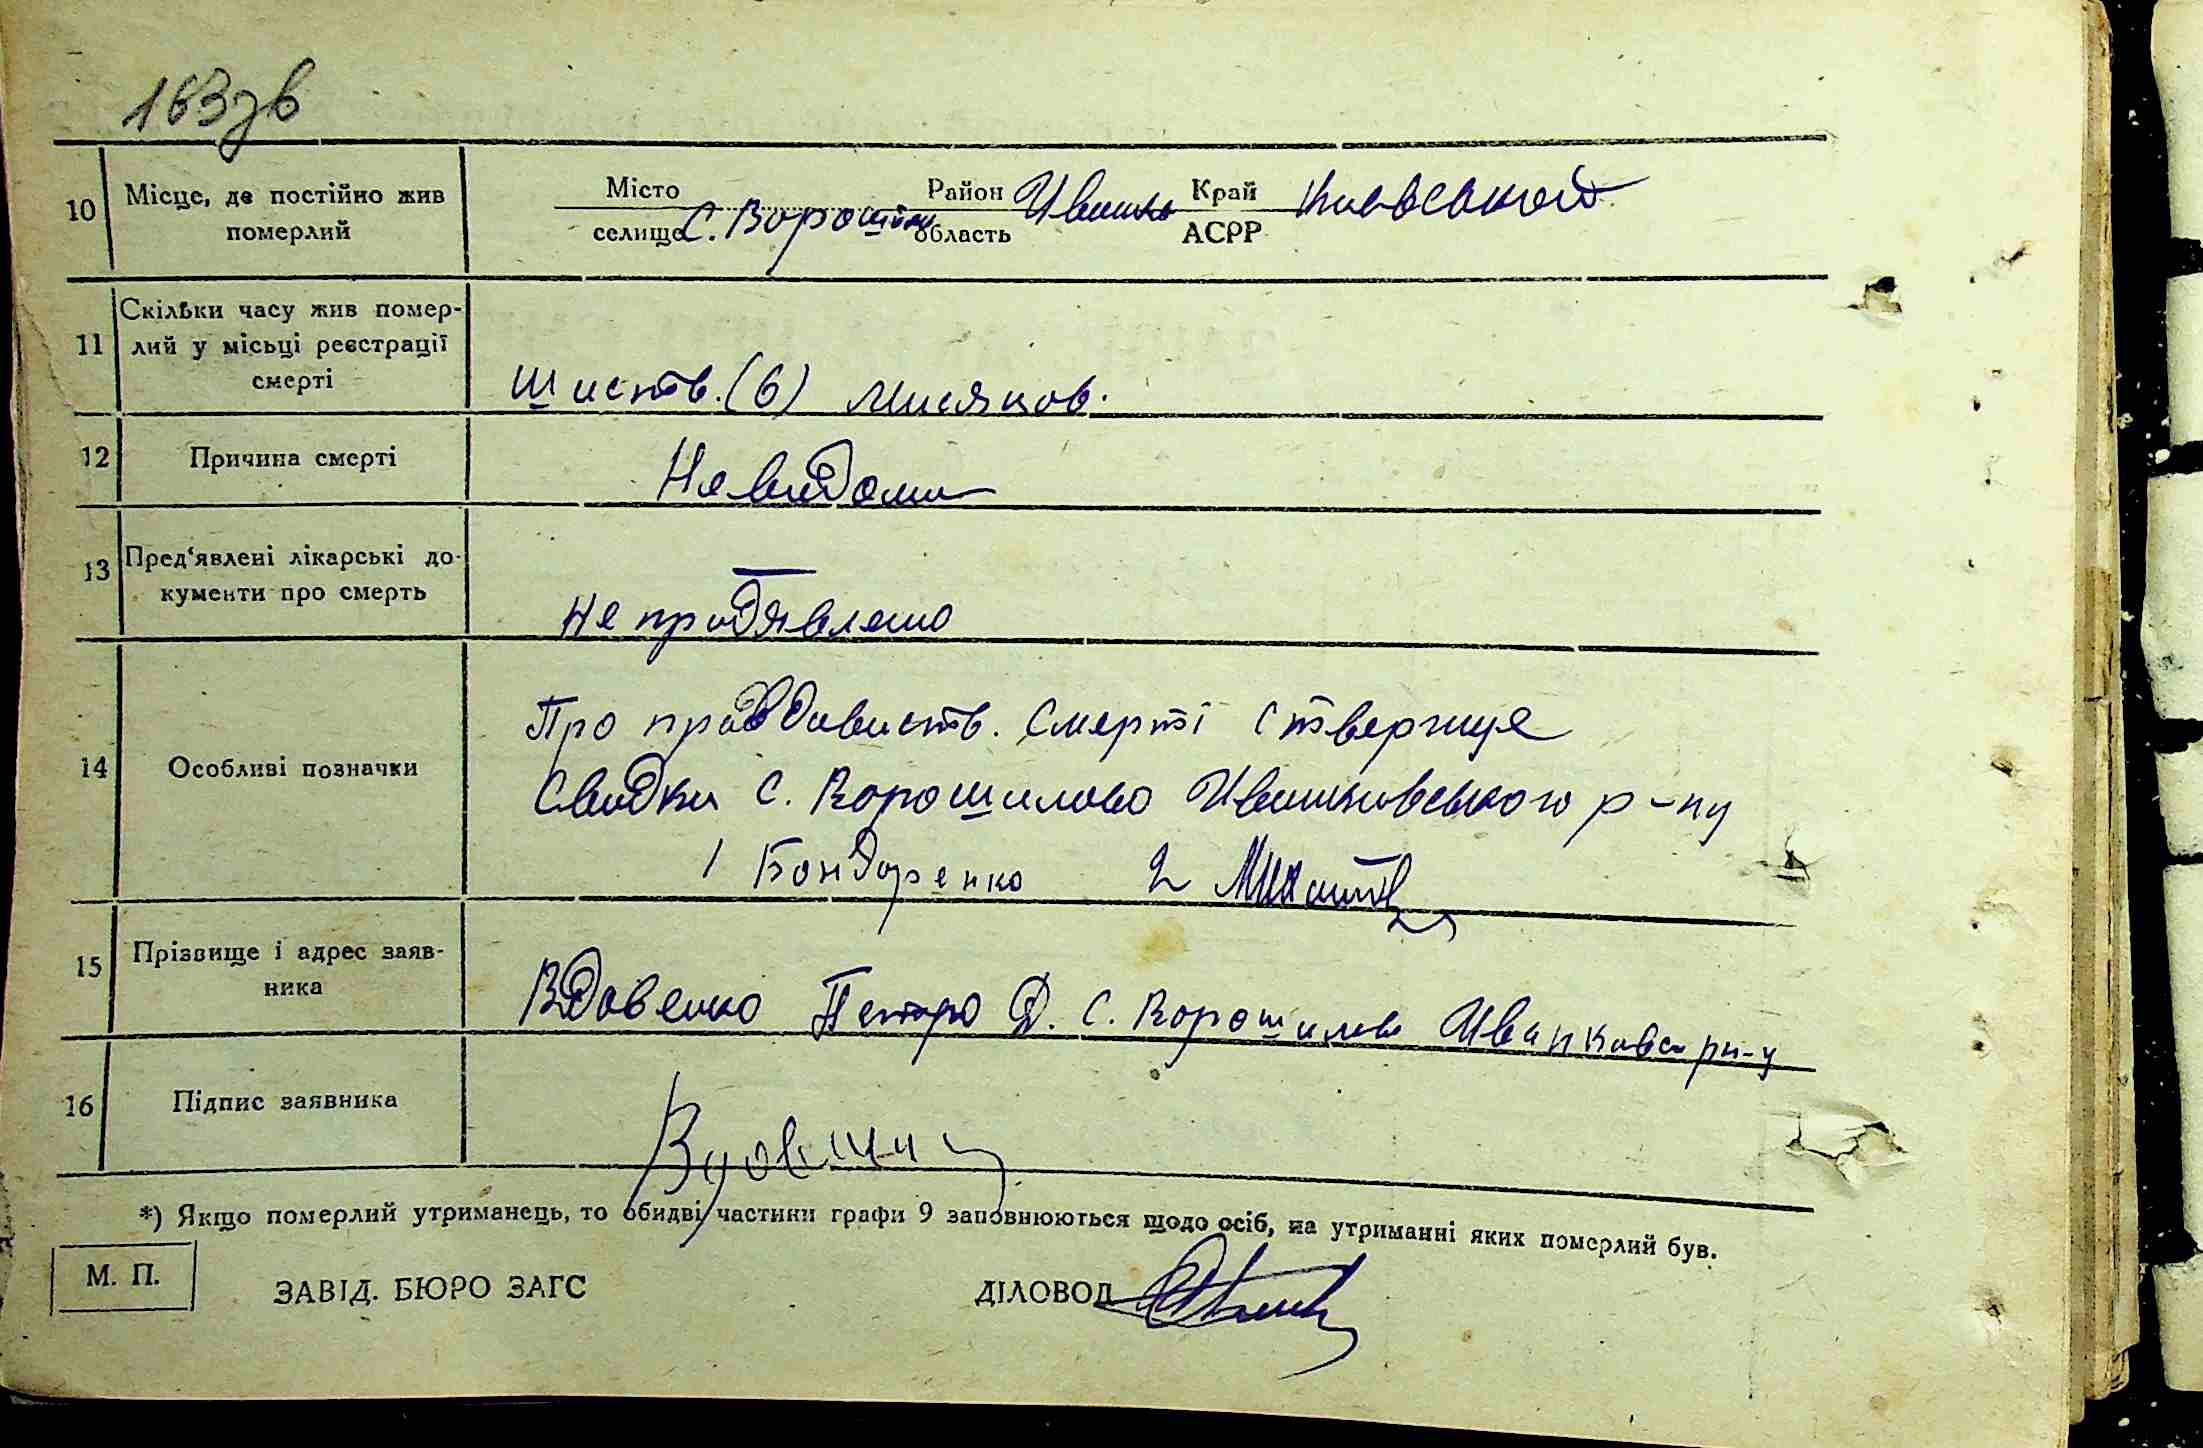 163зв
10 Місце, де постійно жив померлий
Місто селище с. Ворошилово Район область Иванк Край АСРР Киевськой
11 Скільки часу жив помер-
лий у місьці реєстрації
смерті
шисть. (6) мисяцов.
12 Причина смерті
Невидоми
13 Пред‘явлені лікарські до-
кументи про смерть
не предявлено
14 Особливі позначки
Про правдависть. смерті ствержує
Свидки с. Ворошилово Иванковського р-ну
1 Бондаренко 2
15 Прізвище і адрес заяв-
ника
Вдовенко Петро Д. с. Ворошилово Иванковс рн-у
16 Підпис заявника
*) Якщо померлий утриманець, то обидві частини графи 9 заповнюються щодо осіб, на утриманні яких померлий був.
М. П.
ЗАВІД. БЮРО ЗАГС ДІЛОВОД